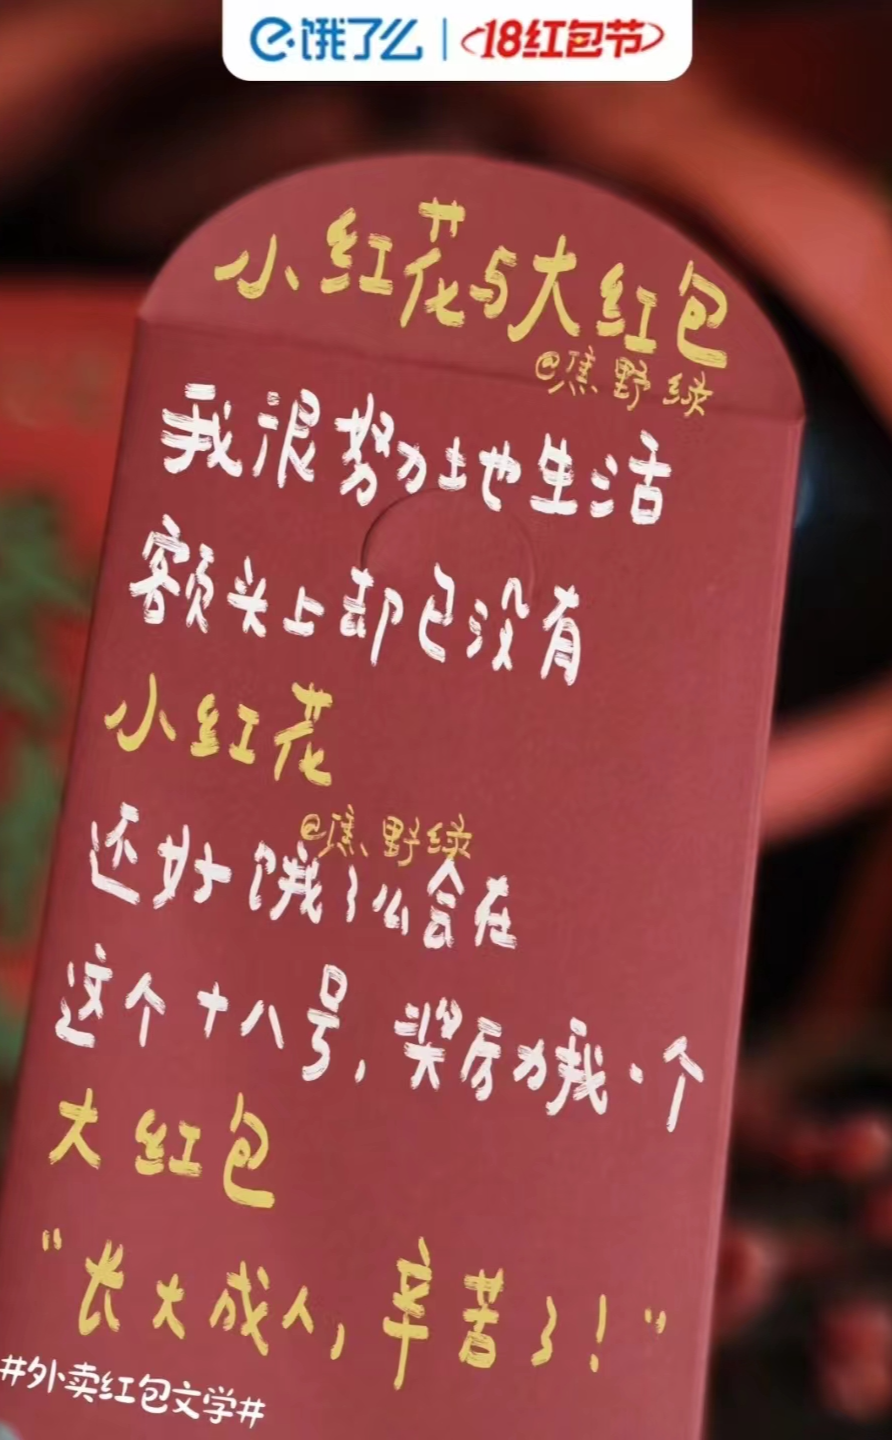 饿了么 | 18红包节
小红花与大红包
@焦野绿
我很努力地生活
额头上却已没有
小红花
@焦野绿
还好饿了么会在
这个十八号,奖励我一个
大红包
“长大成人,辛苦了!”
#外卖红包文学#